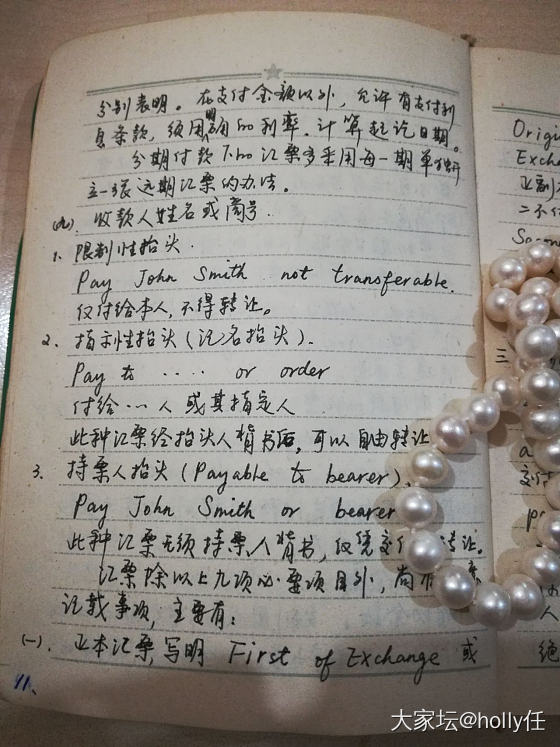 分别表明。在支付金额以外，允许有支付利
息条款，须用明确的利率。计算起讫日期。
分期付款下的汇票多采用每一期单独开
立一张远期汇票的办法。
(九). 收款人姓名或商号.
1. 限制性抬头.
Pay John Smith not transferable.
仅付给本人，不得转让。
2. 指示性抬头（记名抬头）.
Pay to ‥‥ or order
付给…人或其指定人
此种汇票经抬头人背书后，可以自由转让
3. 持票人抬头（Payable to bearer）.
Pay John Smith or bearer
此种汇票无须持票人背书，仅凭交付 转让。
汇票除以上九项必要项目外，尚有
记载事项，主要有：
(一). 正本汇票，写明 First of Exchange 或
41、
Origi
Exch
正副
二不付
Secon
三
a
交付
人
绝
大家坛@holly任